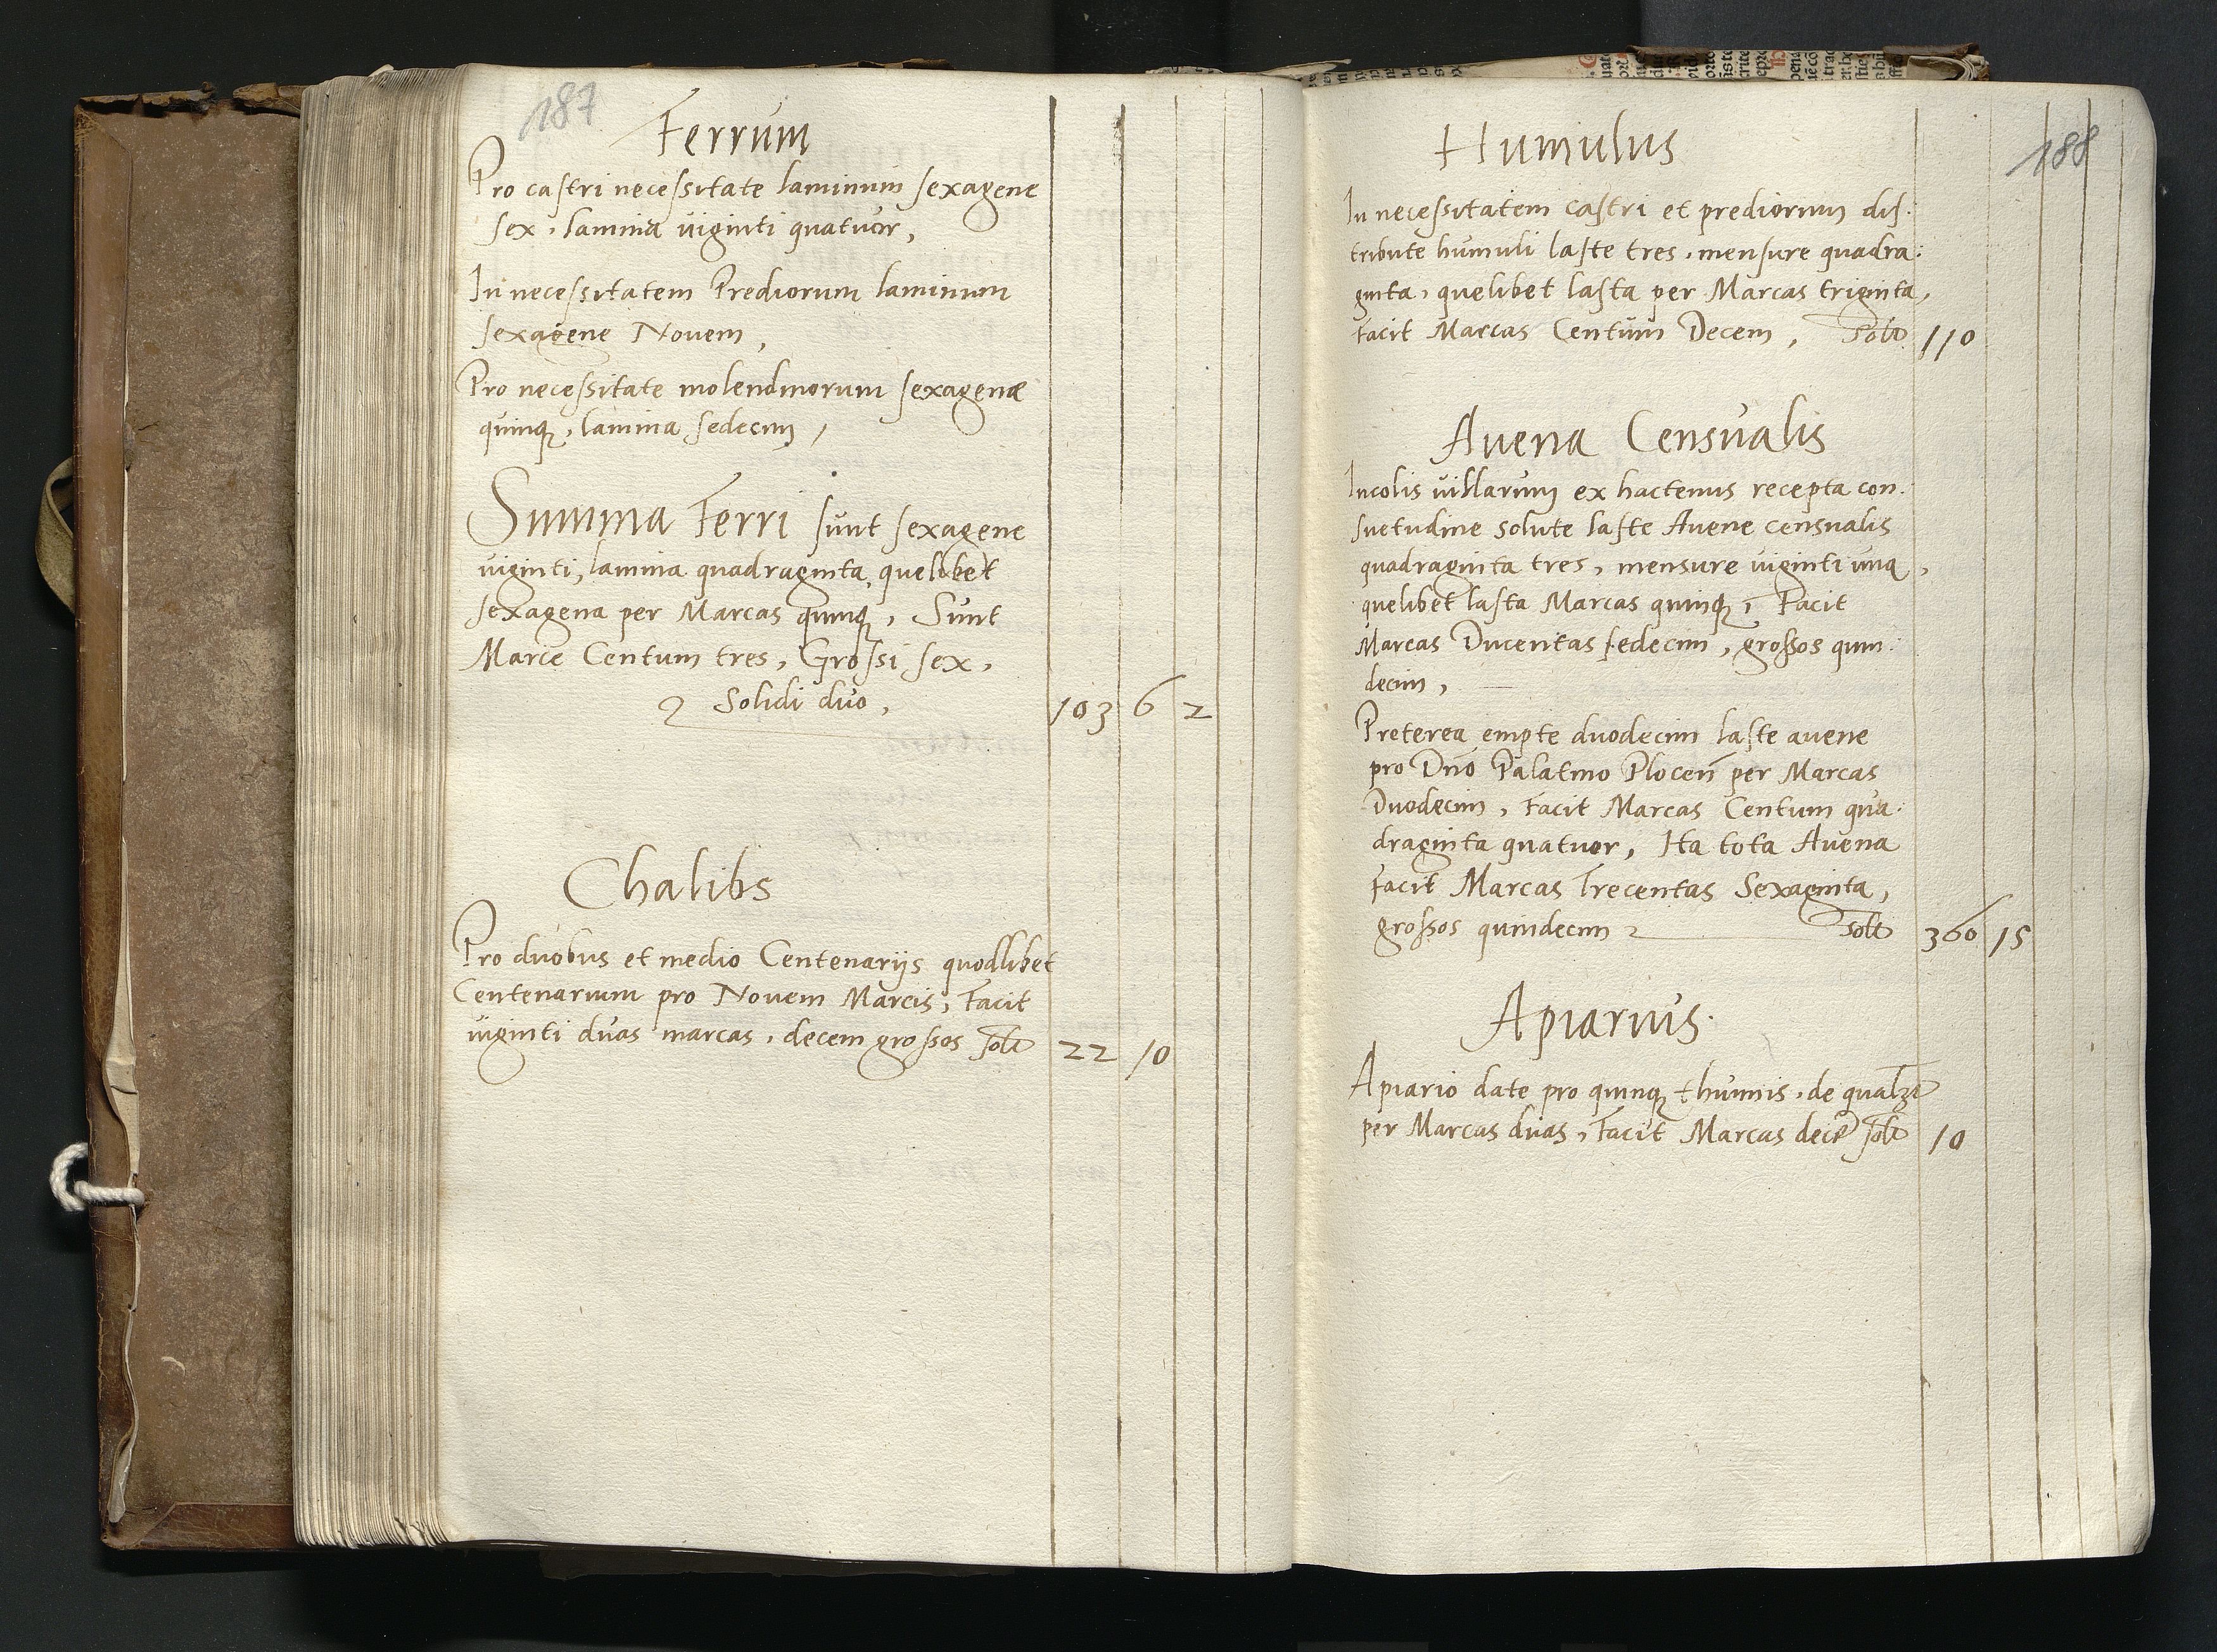 187
Ferrum
Pro castri necessitate laminum sexagene
sex, lamina viginti quatuor,
In necessitatem Prediorum laminum
sexagene Novem,
Pro necessitate molendinorum sexagenæ
quinq, lamina sedecim,
Summa Ferri sunt sexagene
viginti, lamina quadraginta, quelibet
sexagena per Marcas quinq, Sunt
Marce Centum tres, Grossi sex,
2 Solidi duo, 103 6 2
Chalibs
Pro duobus et medio Centenarijs quodlibet
Centenarium pro Novem Marcis, Facit
viginti duas marcas, decem grossos solt 22 10
188
Humulus
In necessitatem castri et prediorum dis:
tribute humuli laste tres, mensure quadra:
ginta, quelibet lasta per Marcas triginta,
Facit Marcas Centum Decem, Solt 110
Avena Censualis
Incolis villarum ex hactenus recepta con:
suetudine solute laste Avene censualis
quadraginta tres, mensure viginti una,
quelibet lasta Marcas quinq, Facit
Marcas Ducentas sedecim, grossos quin:
decim,
Preterea empte duodecim laste avene
pro Dno Palatino Plocen per Marcas
Duodecim, Facit Marcas Centum qua:
draginta quatuor, Ita tota Avena
Facit Marcas Trecentas Sexaginta,
grossos quindecim 2 solt 360 15
Apiarius.
Apiario date pro quinq thunnis, de
per Marcas duas, Facit Marcas decē solt 10